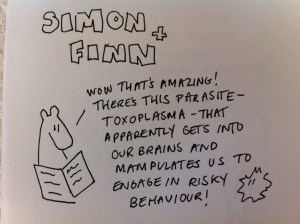 SIMON +
FINN
WOW THAT'S AMAZING!
THERE'S THIS PARASITE -
TOXOPLASMA - THAT
APPARENTLY GETS INTO
OUR BRAINS AND
MANIPULATES US TO
ENGAGE IN RISKY
BEHAVIOUR!